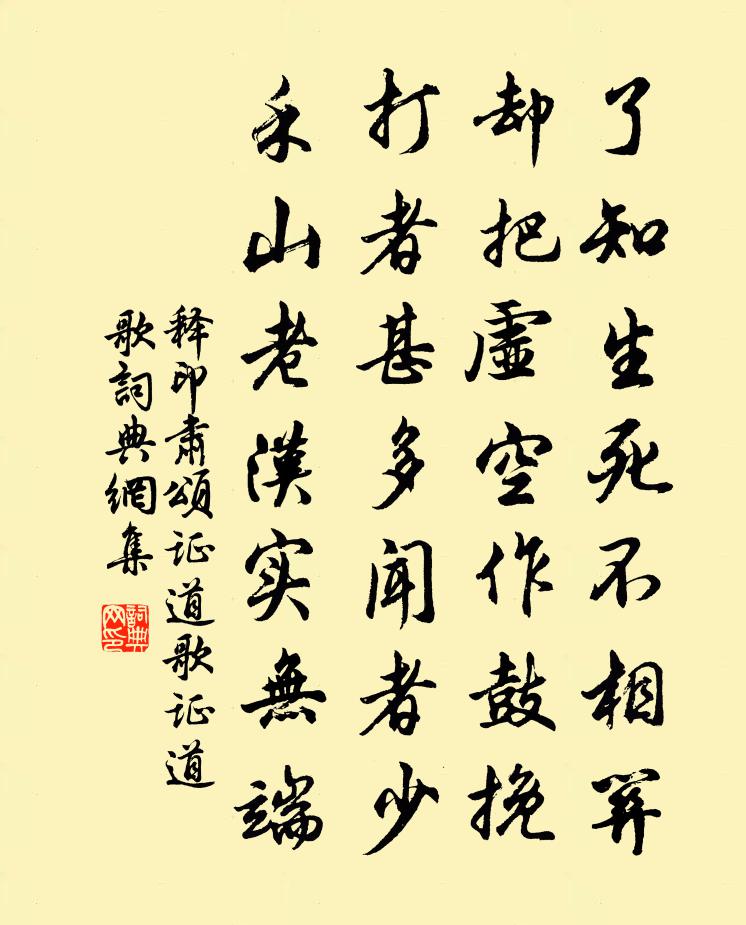 了知生死不相关
却把虚空作鼓挽
打者甚多闻者少
禾山老漢实無端
释印肃頌证道歌证道
歌詞典網集
詞典网印